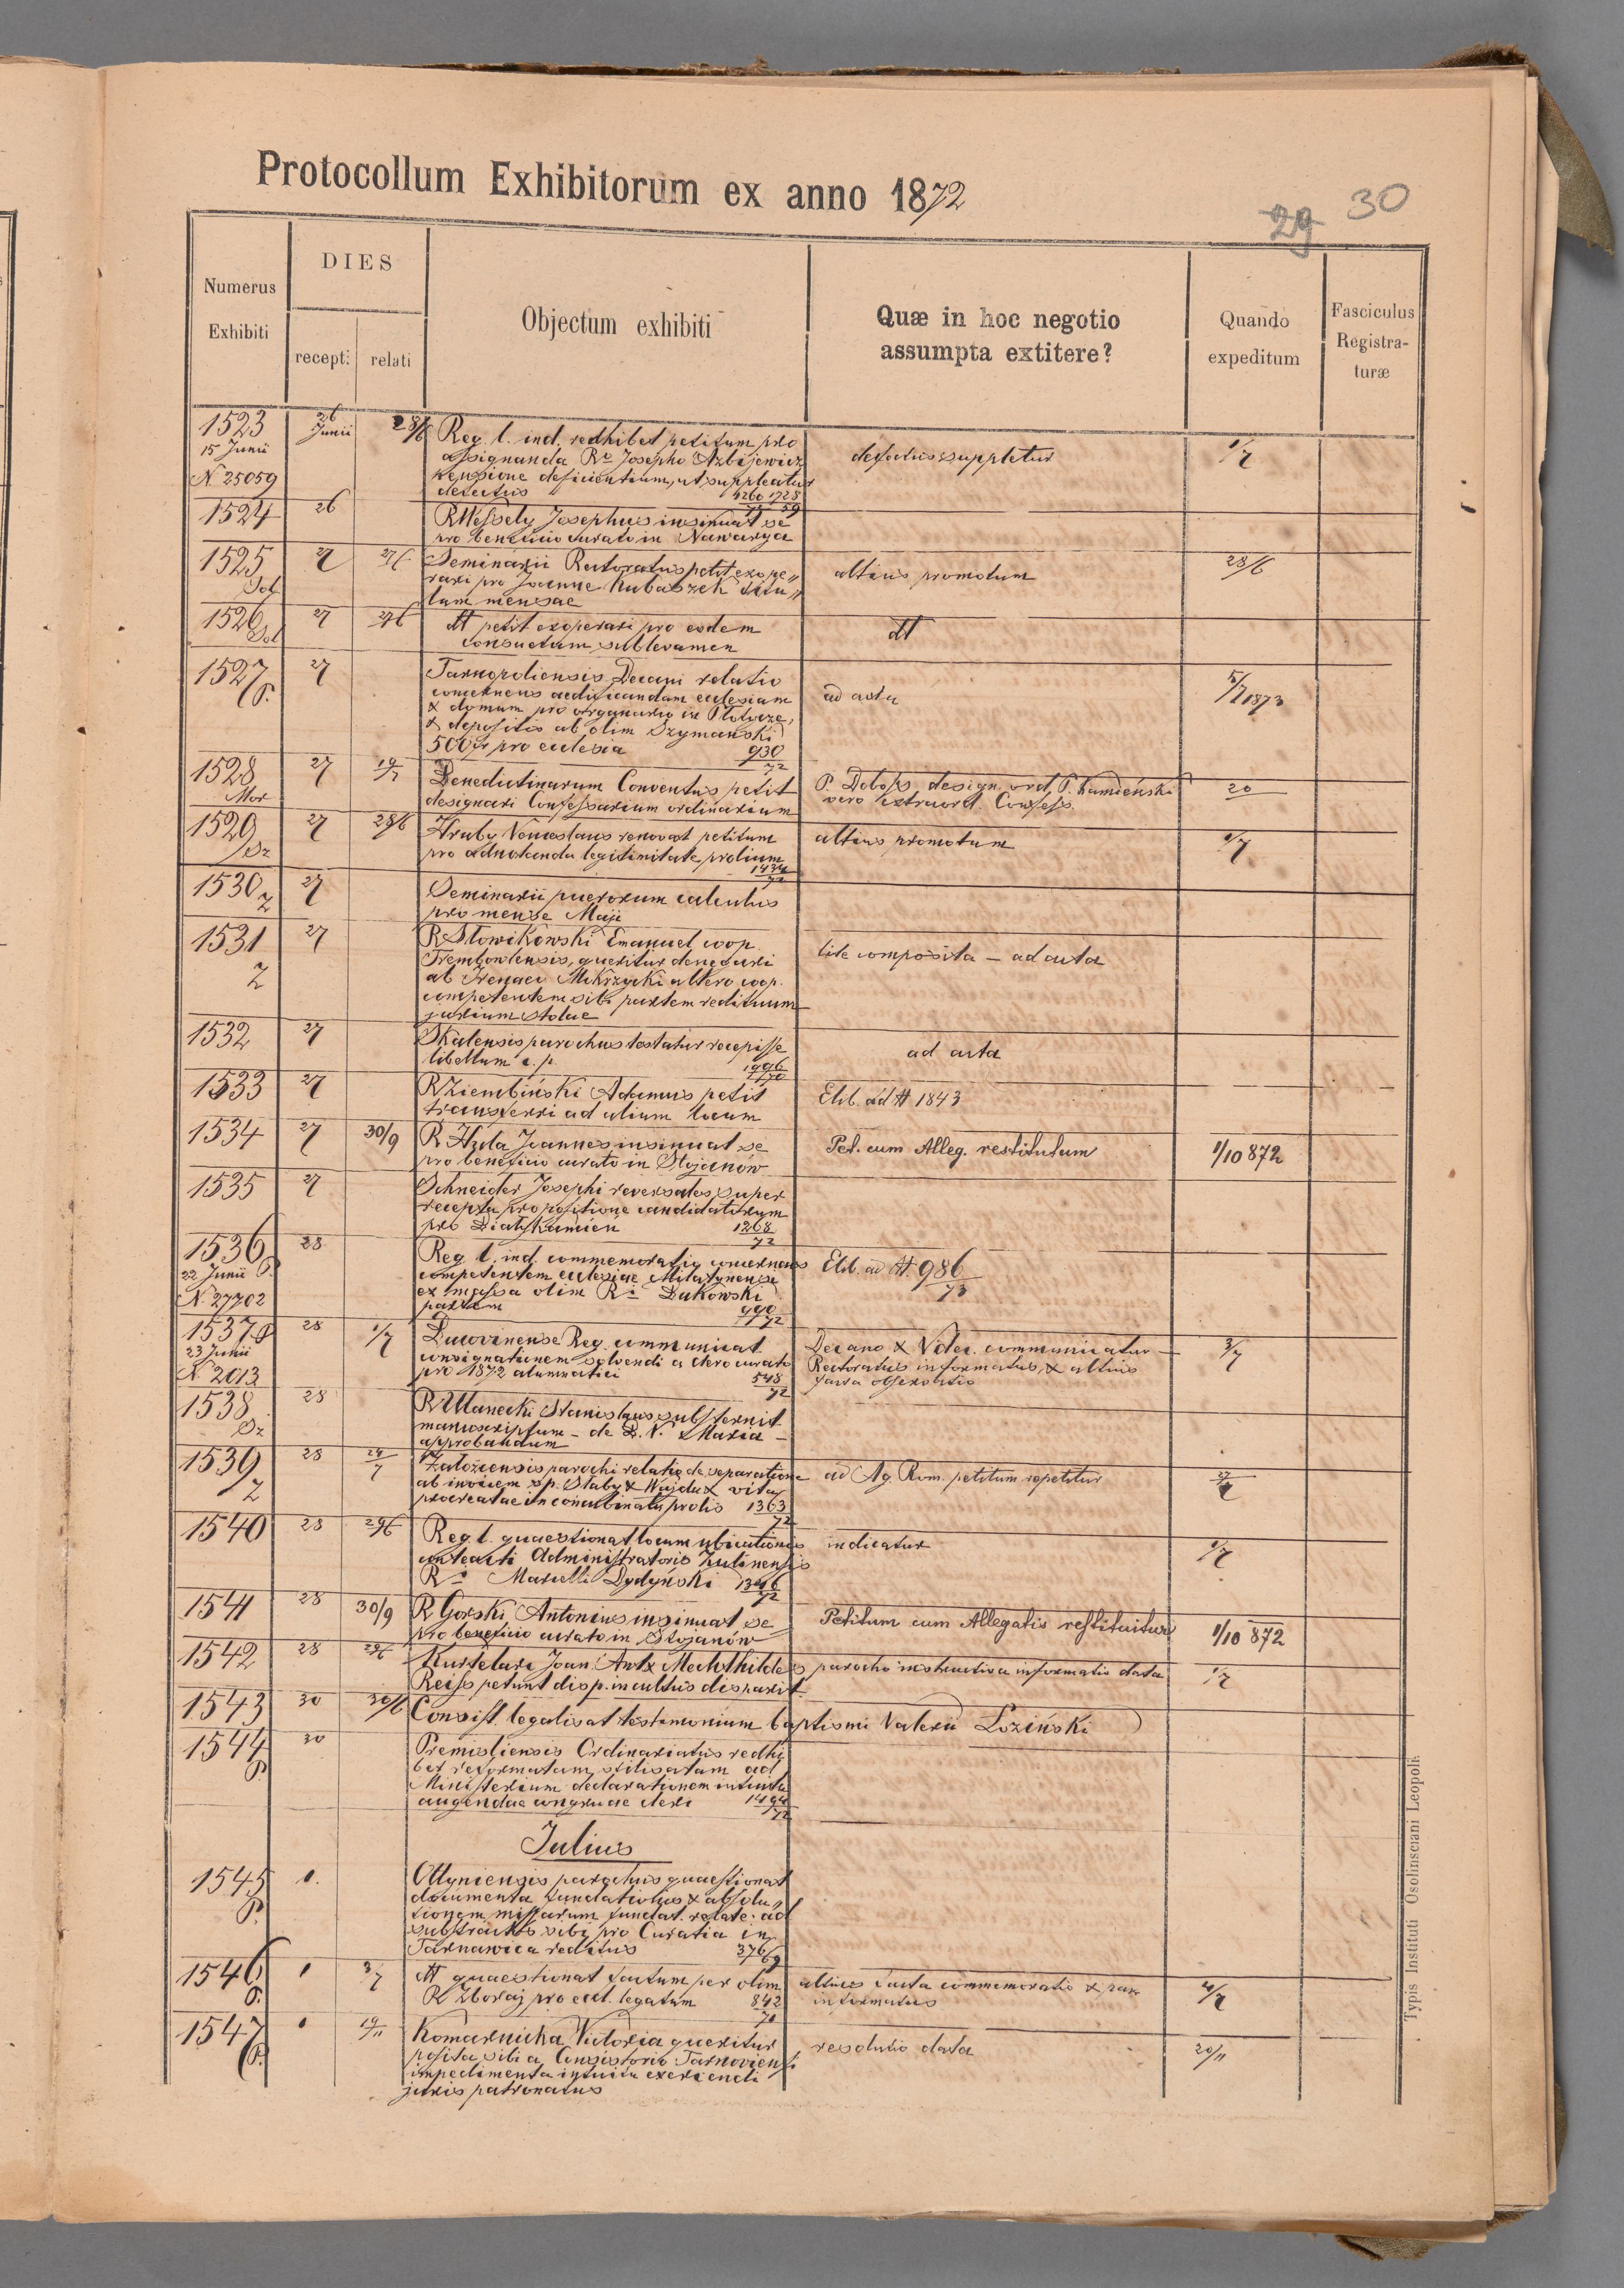 Protocollum Exhibitorum ex anno 1872
29 30
Numerus Exhibiti
DIES
recept: relati
Objectum exhibiti
Quæ in hoc negotio assumpta extitere?
Quando expeditum
Fasciculus Registra-turæ
1523 26 Junii 28/6 Reg. l. ind. redhibet petitum pro defectus suppletur 1/7
15 Junii assignanda Ro Josepho
N 25059 pensione deficientium, ut suppleatur
defectus 1260 1728
1524 26 R Wessely Josephus insinuat se
pro beneficio curato in Nawarya
1525 27 27/6 Seminarii Rectoratus petit exope" altius promotum 28/6
rari pro Joanne Kubaszek titu"
lum mensae
1526 27 27/6 dt petit exoperari pro eodem dt
consuetum sublevamen
1527 27 Tarnopoliensis Decani relatio
P. concernens aedificandam ecclesiam ad acta 5/7 1873
& domum pro organario in
& depositis ab olim Szymański
500 fr pro ecclesia 930/72
1528 27 19/7 Benedictinarum Conventus petit P. design. ord. P. Kamieński 20
Mor designari Confessarium ordinarium vero extraord. Confess.
1529 27 28/6 Hruby Venceslaus renovat petitum altius promotum 1/7
pro adnotanda legitimitate prolium
1434/72
1530 27 Seminarii puerorum calculus
Z pro mense Maji
1531 27 R Słowikowski Emanuel coop.
Z Trembowlensis, queritur denegari lite composita – ad acta
ab Irenaeo altero coop.
competentem sibi partem redituum
jurium stolae
1532 27 Skalensis parochus testatur recepisse ad acta
libellum a. p. 1996/70
1533 27 R Ziembiński Adamus petit Elib. ad N 1843
transferri ad alium locum
1534 27 30/9 R Hyla Joannes insinuat se Pet. cum Alleg. restitutum 1/10 872
pro beneficio curato in Stojanów
1535 27 Schneider Josephi reversales super
recepta propositione candidatorum
pro Białykamien 1268/72
1536 28 Reg. l. ind. commemoratio concernens Elib. ad N. 986/73
22 Junii P. competentem ecclesiae Milatynensi
N. 27202 ex massa olim Ri Dukowski
partem 990/72
1537 P 28 1/7 Bucovinense Reg. communicat Decano & Vdec. communicatur – 3/7
23 Junii consignationem solvendi a clero curato Rectoratus informatus, & altius
N. 2013 pro 1872 alumnatici 548/72 facta observatio
1538 28 R Ulanecki Stanislaus substernit
Dz manuscriptum – de B. V. Maria –
approbandum
1539 28 24/7 Załoziensis parochi relatio de separatione ad Ag. Rom. petitum repetitur 27/7
Z ab invicem sp. Słaby & Wajda & vitae
procreatae in concubinatu prolis 1363/72
1540 28 29/6 Reg. l. quaestionat locum ubicationis indicatur 1/7
Administratoris
Ri Marcelli Dydyński 1346/72
1541 28 30/9 R Gorski Antonius insinuat se Petitum cum Allegatis restituitur 1/10 872
pro beneficio curato in Stojanów
1542 28 29/6 Joan. Ant. & Mechthildes parocho instructiva informatio data 1/7
Reiss petunt disp. in cultus disparit.
1543 30 30/6 Consist. legalisat testimonium baptismi Valerii Łoziński
1544 30 Premisliensis Ordinariatus redhi
P. bet reformatam, stilisatam ad
Ministerium declarationem intuitu
augendae congruae cleri 1494/72
Julius
1545 1. Ottyniensis parochus quaestionat
P. documenta fundationis & absolu"
tionem missarum fundat. relate ad
substractos sibi pro Curatia in
Tarnawica reditus 376/69
1546 1 3/7 dt quaestionat factum per olim altius facta commemoratio & par. 4/7
P. R Zboraj pro eccl. legatum 842/71 informatus
1547 1 19/11 Komarnicka Victoria queritur resolutio data 20/11
P. posita sibi a Consistorio Tarnoviensi
impedimenta intuitu exercendi
juris patronatus
Typis Instituti Osolinsciani Leopoli.